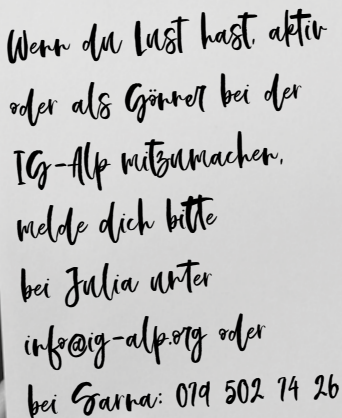 Wenn du Lust hast, aktiv
oder als Gönner bei der
IG-Alp mitzumachen,
melde dich bitte
bei Julia unter
info@ig-alp.org oder
bei Sarna: 079 502 74 26